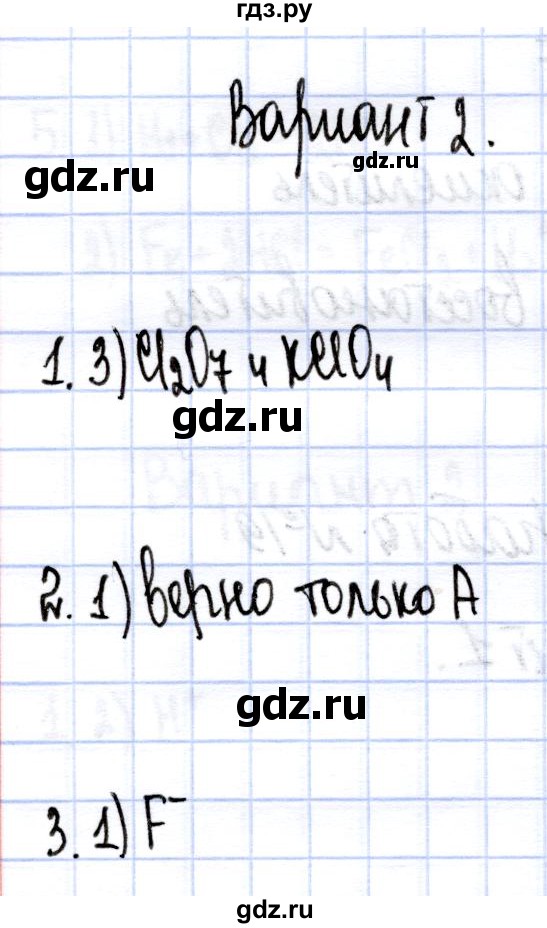 гдз.ру
Вариант 2.
gdz.ru
gdz.ru
1. 3) Cl2O7 и KClO4
gdz.ru
2. 1) верно только А
gdz.ru
3. 1) F⁻
gdz.ru
gdz.ru